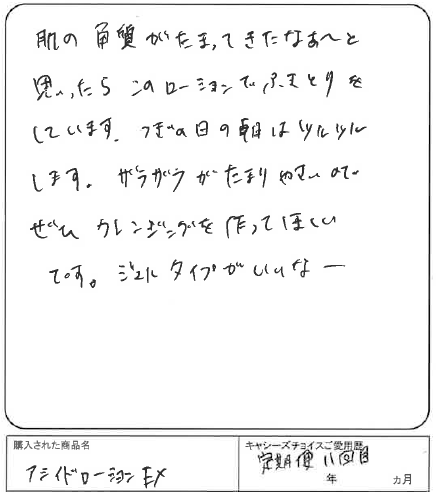 肌の角質がたまってきたなぁ〜と
思ったらこのローションでふきとりを
しています。つぎの日の朝はツルツル
します。ザラザラがたまりやすいので
ぜひクレンジングを作ってほしい
です。ジェルタイプがいいなー
購入された商品名
アシィドローションEX
キャシーズチョイスご愛用歴
定期便11回目
年 ヵ月